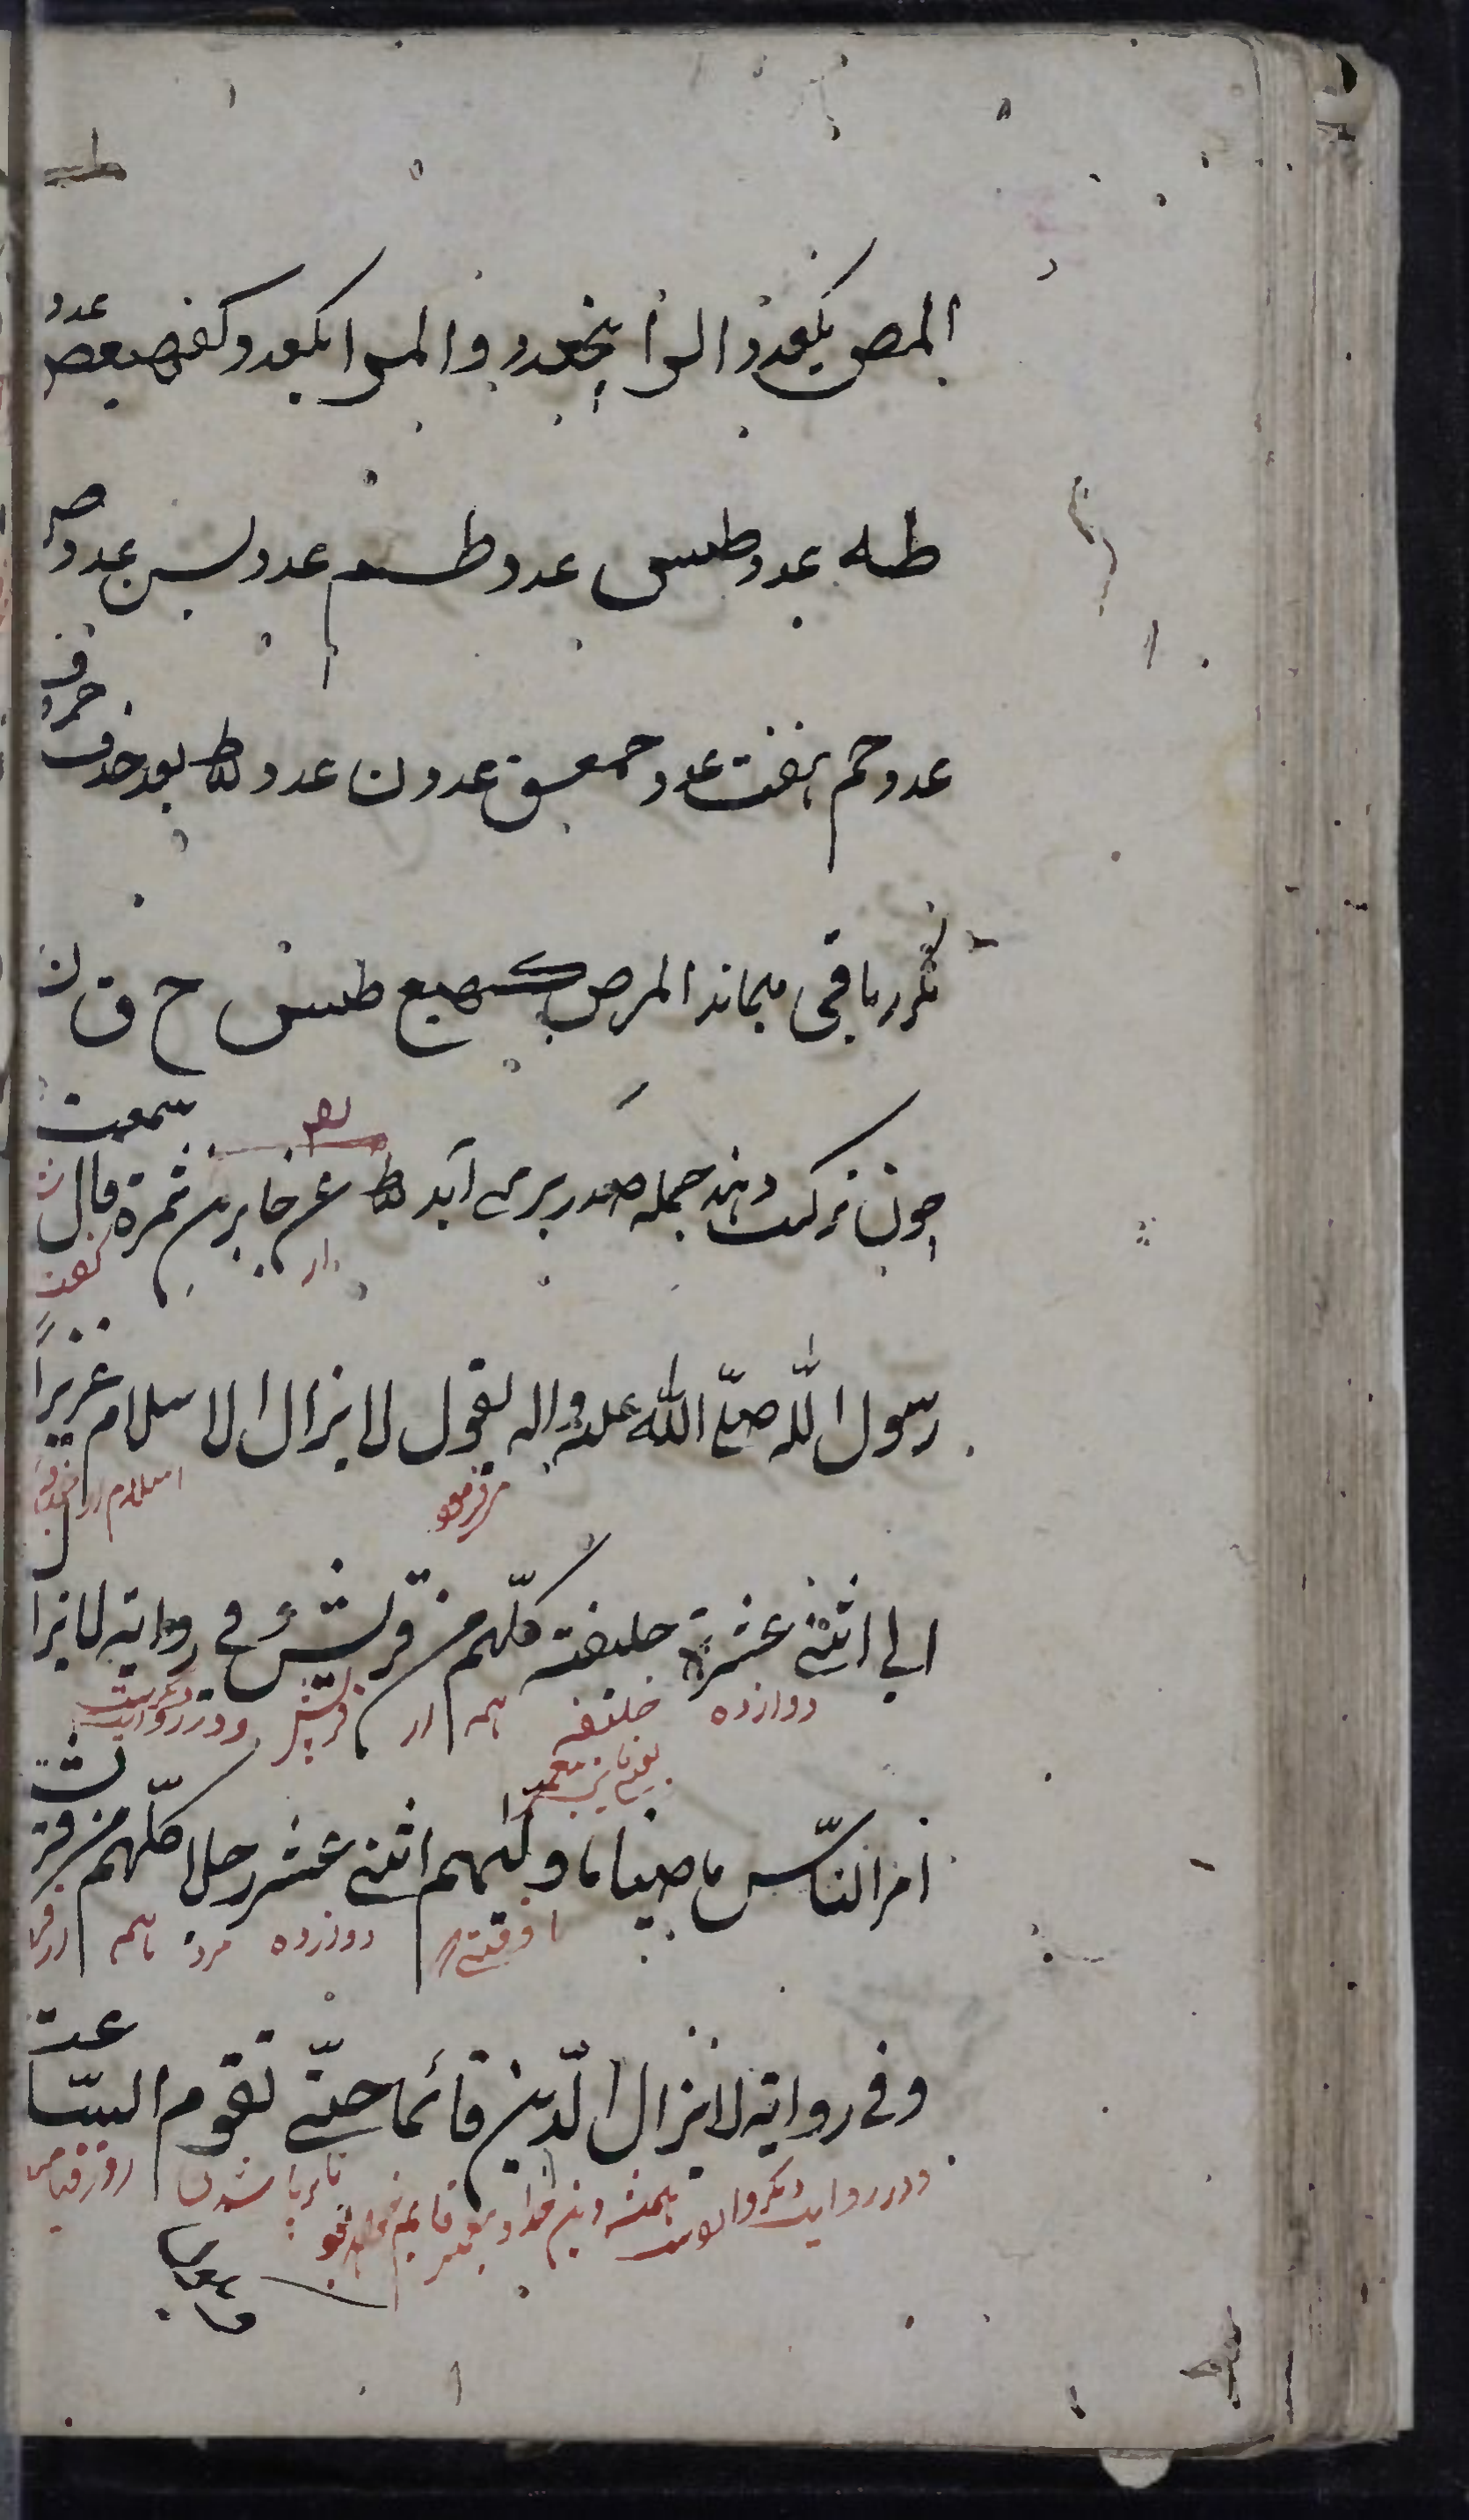 المص یکعدد الرا پنجعدد و المرا یکعدد و کهیعص عدد
طه عدد طس عدد طسم عدد یس عدد ص
عدد حم هفت عدد حمعسق عدد ن عدد بعد حذف حروف
مکرر باقی میماند المر ص کهیع طس ح ق ن
چون ترکیب دهند جمله صدر برمی آید عن جابر بن ثمرة قال سمعت
از گفت
رسول الله صلّی الله علیه واله یقول لا یزال الاسلام عزیزاً
میفرمود اسلام
الی اثنی عشرة خلیفة کلّهم من قریش و فی روایة لا یزال
دوازده خلیفه همه از قریش و در روایت
امر النّاس ماضیا ما ولیهم اثنی عشر رجلا کلّهم من قریش
دوازده مرد همه از
و فی روایة لا یزال الدّین قائما حتّی تقوم السّاعة
و در روایت دیگر همیشه دین قایم تا برپا شدن روز قیامت